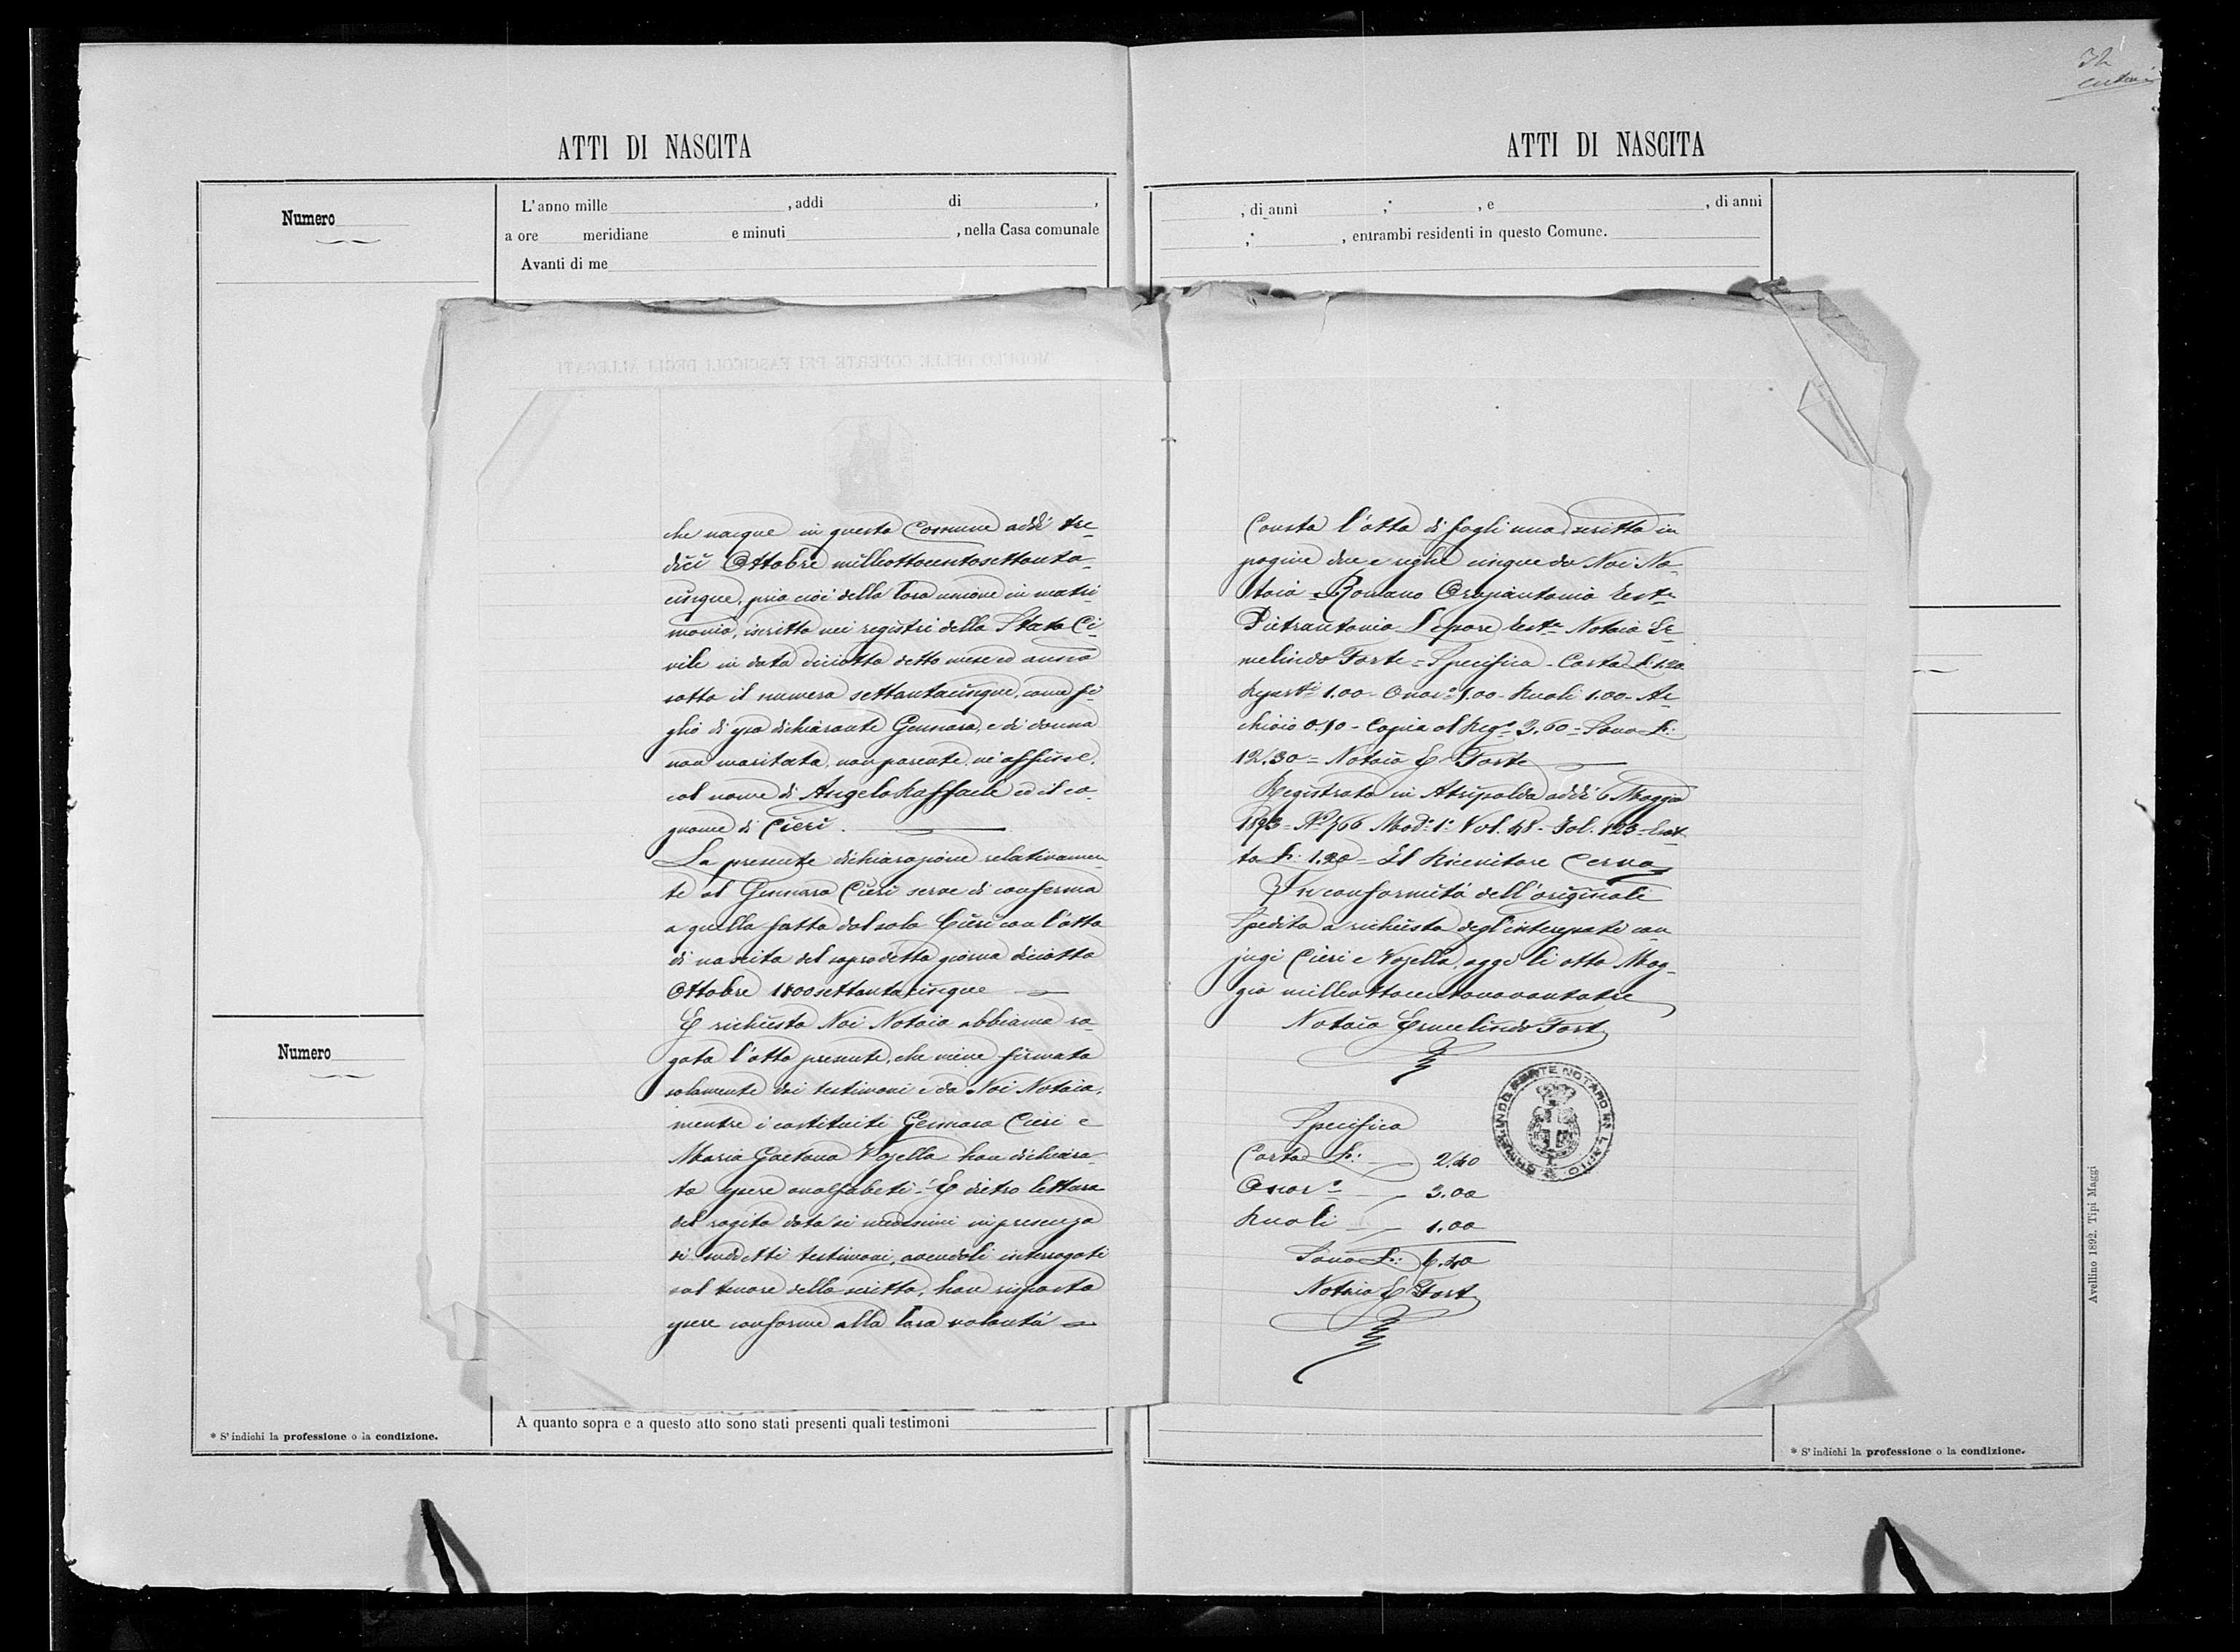 ATTI DI NASCITA
Numero
L'anno mille , addì di ,
a ore meridiane e minuti , nella Casa comunale
Avanti di me
MODULO DELLE COPERTE PEI FASCICOLI DEGLI ALLEGATI
che nacque in questo Comune addì tre-
dici Ottobre milleottocentosettanta-
cinque, pria cioè della loro unione in matri-
monio, iscritto nei registri dello Stato Ci-
vile in data diciotto detto mese ed anno
sotto il numero settantacinque, come fi-
glio di esso dichiarante Gennaro, e di donna
non maritata, non parente, nè affine,
col nome di Angelo Raffaele ed il co-
gnome di Cieri.
La presente dichiarazione relativamen-
te al Gennaro Cieri serve di conferma
a quella fatta dal solo Cieri con l'atto
di nascita del sopradetto giorno diciotto
Ottobre 1800settantacinque
E richiesto Noi Notaio abbiamo ro-
gato l'atto presente, che viene firmato
solamente dai testimoni e da Noi Notaio,
mentre i costituiti Gennaro Cieri e
Maria Gaetana Vozella han dichiara-
to essere analfabeti - E dietro lettura
del rogito data ai medesimi in presenza
di suddetti testimoni, avendoli interrogati
sul tenore dello scritto, han risposto
essere conforme alla loro volontà
Numero
A quanto sopra e a questo atto sono stati presenti quali testimoni
* S'indichi la professione o la condizione.
32
ATTI DI NASCITA
, di anni ; , e , di anni
; , entrambi residenti in questo Comune.
Consta l'atto di fogli uno scritto in
pagine due e righe cinque da Noi No-
taio = Romano Orapiantonio test.e
Pietrantonio Lepore test.e Notaio Er-
melindo Forte = Specifica - Carta L: 1.20
Repert.i 1.00 - Onor.o 5.00 - Ruoli 1.00 - Ar-
chivio 0.50 - Copia al Reg.o 3.60 = Sono L:
12.30 = Notaio E. Forte
Registrato in Atripalda addì 6 Maggio
1893 = N.o 766 Mod.o 1.o Vol. 48 - Fol. 123 - Esat-
to L: 1.20 = Il Ricevitore Cerva
In conformità dell'originale
Spedita a richiesta degl'interessati con-
jugi Cieri e Vozella, oggi li otto Mag-
gio milleottocentonovantatre
Notaio Ermelindo Forte
ERMELINDO FORTE NOTARO IN LAPIO
Specifica
Carta L: 2.40
Onor.o 3.00
Ruoli 1.00
Sono L: 6.40
Notaio E. Forte
Avellino 1892. Tipi Maggi
* S'indichi la professione o la condizione.